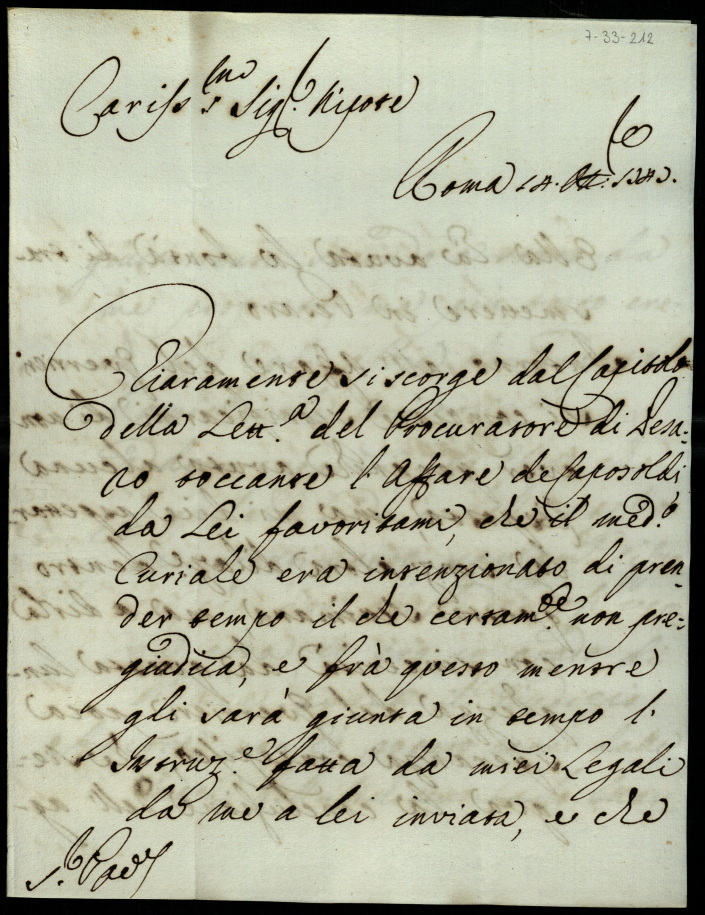 7-33-212
Cariss.mo Sig.r Nipote
Roma 14. Ott.e
Chiaramente si scorge dal Capitolo
della Lett.a del Procuratore di Pesa-
ro toccante l'Affare de Caposoldi
da Lei favoritami, che il med.o
Curiale era intenzionato di pren
der tempo il che certam.te non pre-
giudica, e frà questo mentre
gli sarà giunta in tempo l'
Instruz.e fatta da miei Legali
da me a lei inviata, e che